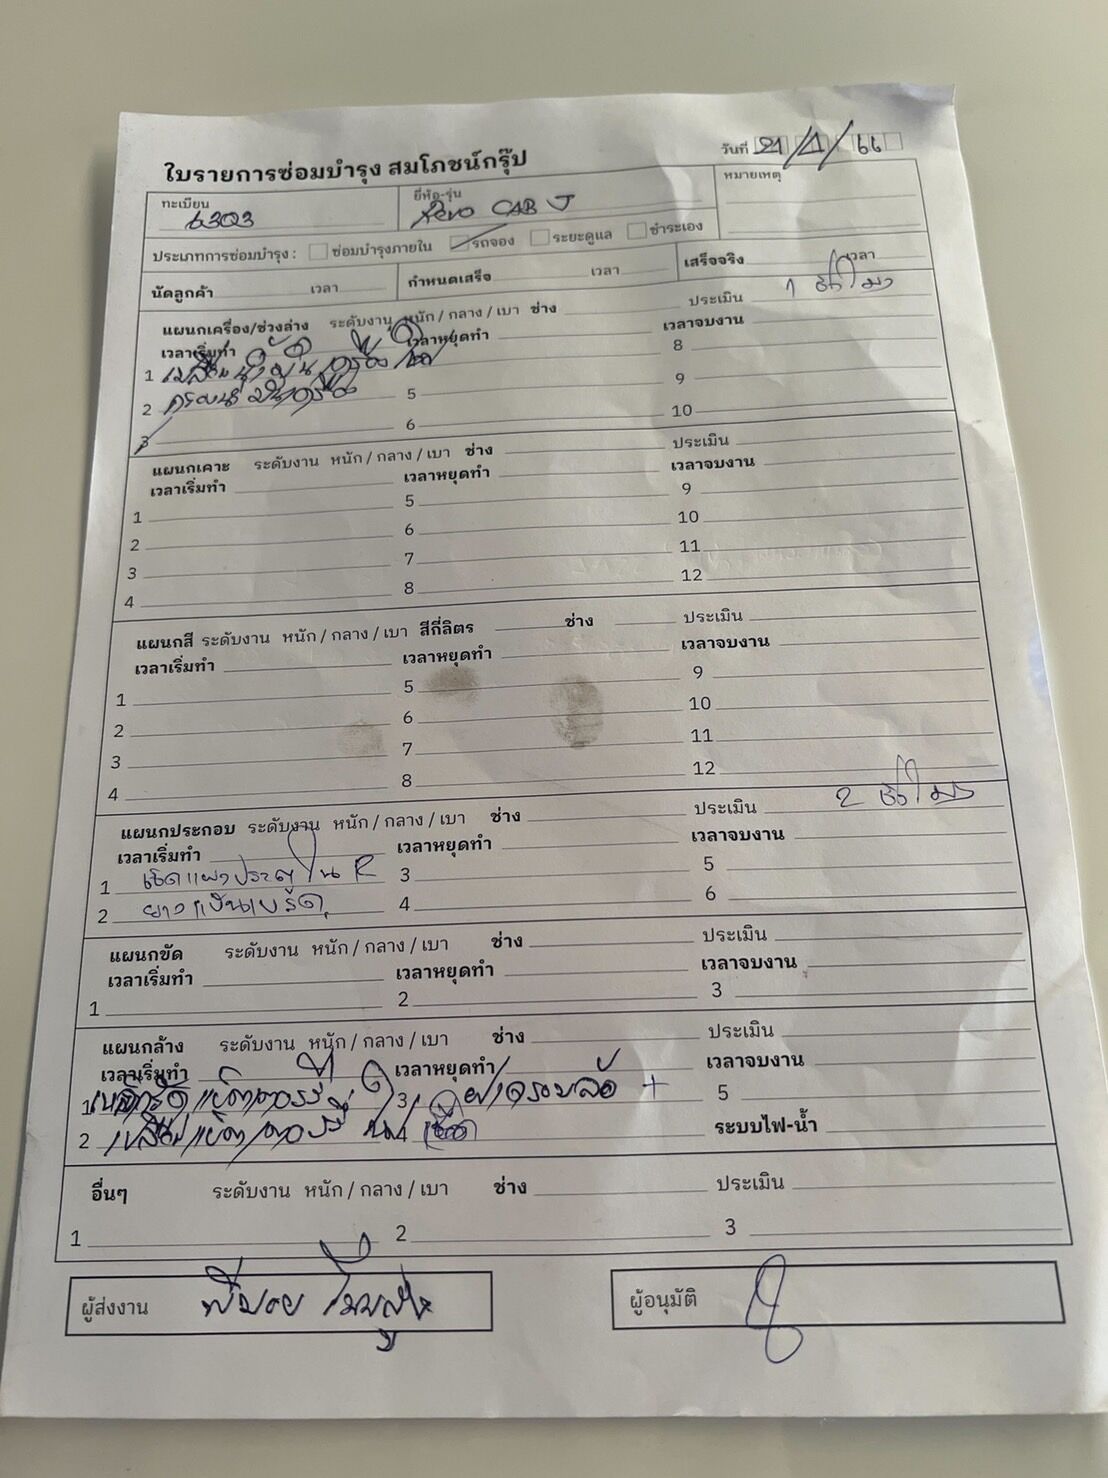 ใบรายการซ่อมบำรุง สมโภชน์กรุ๊ป
วันที่ 21/1/66
ทะเบียน 6303
ยี่ห้อ-รุ่น Revo CAB J
หมายเหตุ
ประเภทการซ่อมบำรุง : ซ่อมบำรุงภายใน รถจอง ระยะดูแล ชำระเอง
นัดลูกค้า เวลา กำหนดเสร็จ เวลา เสร็จจริง เวลา
แผนกเครื่อง/ช่วงล่าง ระดับงาน หนัก / กลาง / เบา ช่าง ประเมิน 1 ชั่วโมง
เวลาเริ่มทำ เวลาหยุดทำ เวลาจบงาน
1 8
2 5 9
3 6 10
แผนกเคาะ ระดับงาน หนัก / กลาง / เบา ช่าง ประเมิน
เวลาเริ่มทำ เวลาหยุดทำ เวลาจบงาน
1 5 9
2 6 10
3 7 11
4 8 12
แผนกสี ระดับงาน หนัก / กลาง / เบา สีกี่ลิตร ช่าง ประเมิน
เวลาเริ่มทำ เวลาหยุดทำ เวลาจบงาน
1 5 9
2 6 10
3 7 11
4 8 12
แผนกประกอบ ระดับงาน หนัก / กลาง / เบา ช่าง ประเมิน 2 ชั่วโมง
เวลาเริ่มทำ เวลาหยุดทำ เวลาจบงาน
1 เช็ดแผงประตูใน R 3 5
2 4 6
แผนกขัด ระดับงาน หนัก / กลาง / เบา ช่าง ประเมิน
เวลาเริ่มทำ เวลาหยุดทำ เวลาจบงาน
1 2 3
แผนกล้าง ระดับงาน หนัก / กลาง / เบา ช่าง ประเมิน
เวลาเริ่มทำ เวลาหยุดทำ เวลาจบงาน
1 เหล็กรัดแบตเตอรรี่ 3 ฝาครอบล้อ + 5
2 เปลี่ยนแบตเตอรรี่ 4 ระบบไฟ-น้ำ
อื่นๆ ระดับงาน หนัก / กลาง / เบา ช่าง ประเมิน
1 2 3
ผู้ส่งงาน
ผู้อนุมัติ